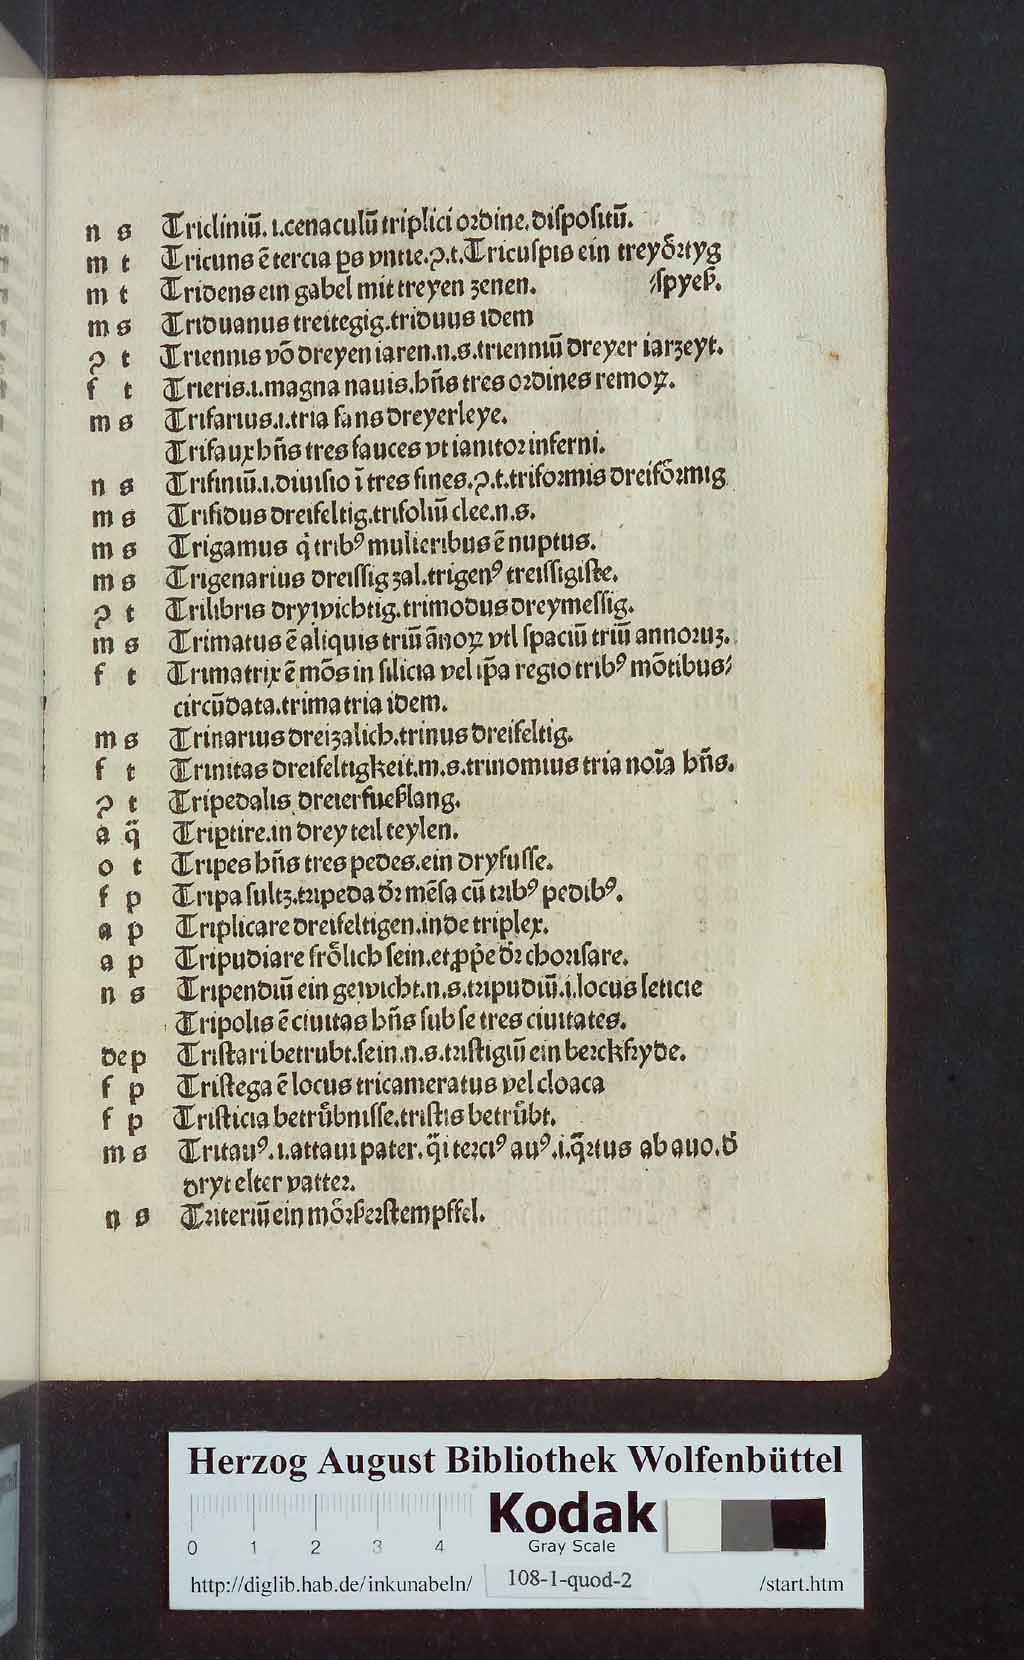 n s Tricliniū. i.cenaculū triplici ordine.dispositū.
m t Tricuns ē tercia ꝑs vntie.ꝯ.t.Tricuspis ein treyȯrtyg
m t Tridens ein gabel mit treyen zenen. ⸗spyeß.
m s Triduanus treitegig.triduus idem
ꝯ t Triennis vō dreyen iaren.n.s.trienniū dreyer iarzeyt.
f t Trieris.i.magna nauis.hn̄s tres ordines remoꝝ.
m s Trifarius.i.tria fans dreyerleye.
Trifaux hn̄s tres fauces vt ianitor inferni.
n s Trifiniū.i.diuisio ī tres fines.ꝯ.t.triformis dreifȯrmig
m s Trifidus dreifeltig.trifoliū clee.n.s.
m s Trigamus q̇ tribꝰ mulieribus ē nuptus.
m s Trigenarius dreissig zal.trigenꝰ treissigiste.
ꝯ t Trilibris drywichtig.trimodus dreymessig.
m s Trimatus ē aliquis triū ānoꝝ vtl spaciū triū annoruz.
f t Trimatrix ē mōs in silicia vel ip̄a regio tribꝰ mōtibus⸗
circūdata.trimatria idem.
m s Trinarius dreizalich.trinus dreifeltig.
f t Trinitas dreifeltigkeit.m.s.trinomius tria noīa hn̄s.
ꝯ t Tripedalis dreierfueßlang.
a q̄ Triꝑtire.in drey teil teylen.
o t Tripes hn̄s tres pedes.ein dryfusse.
f p Tripa sultz.tripeda dr̄ mēsa cū tribꝰ pedibꝰ.
a p Triplicare dreifeltigen.inde triplex.
a p Tripudiare frȯlich sein.et ꝓpe dr̄ chorisare.
n s Tripendiū ein gewicht.n.s.tripudiū.i.locus leticie
Tripolis ē ciuitas hn̄s sub se tres ciuitates.
dep Tristari betrubt.sein.n.s.tristigiū ein berckfryde.
f p Tristega ē locus tricameratus vel cloaca
f p Tristicia betrůbnisse.tristis betrůbt.
m s Tritauꝰ.i.attaui pater.q̄i terciꝰ auꝰ.i.q̄rtus ab auo.d̄
dryt elter vatter.
n s Triteriū ein mȯrßerstempffel.
Herzog August Bibliothek Wolfenbüttel
0 1 2 3 4
Kodak
Gray Scale
http://diglib.hab.de/inkunabeln/ 108-1-quod-2 /start.htm